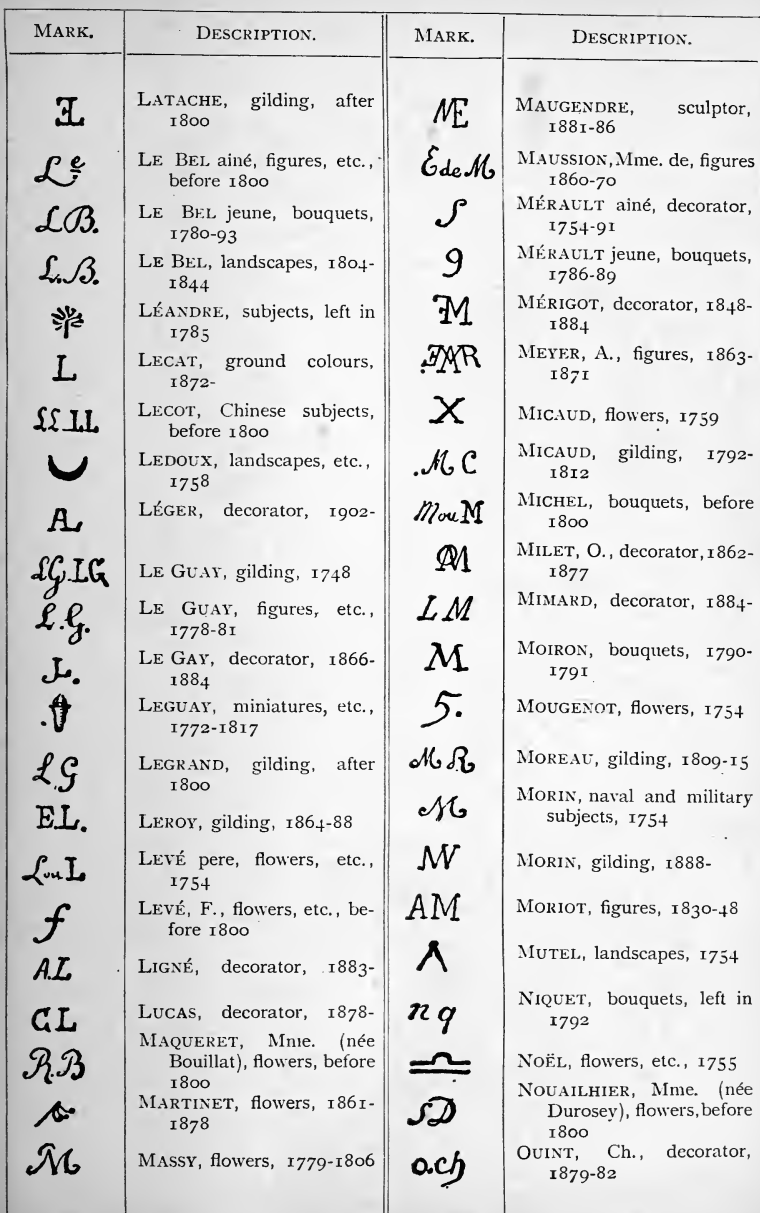 MARK. DESCRIPTION.
LATACHE, gilding, after
1800
Le LE BEL ainé, figures, etc.,
before 1800
L.B. LE BEL jeune, bouquets,
1780-93
L.B. LE BEL, landscapes, 1804-
1844
LÉANDRE, subjects, left in
1785
L LECAT, ground colours,
1872-
LL LL LECOT, Chinese subjects,
before 1800
LEDOUX, landscapes, etc.,
1758
LÉGER, decorator, 1902-
LG. LG LE GUAY, gilding, 1748
L.G. LE GUAY, figures, etc.,
1778-81
LE GAY, decorator, 1866-
1884
LEGUAY, miniatures, etc.,
1772-1817
L.G LEGRAND, gilding, after
1800
E.L. LEROY, gilding, 1864-88
L ou L LEVÉ pere, flowers, etc.,
1754
f LEVÉ, F., flowers, etc., be-
fore 1800
A.L LIGNÉ, decorator, 1883-
CL LUCAS, decorator, 1878-
R.B MAQUERET, Mme. (née
Bouillat), flowers, before
1800
MARTINET, flowers, 1861-
1878
M MASSY, flowers, 1779-1806
MARK. DESCRIPTION.
ME MAUGENDRE, sculptor,
1881-86
E de M MAUSSION, Mme. de, figures
1860-70
S MÉRAULT ainé, decorator,
1754-91
9 MÉRAULT jeune, bouquets,
1786-89
MÉRIGOT, decorator, 1848-
1884
MEYER, A., figures, 1863-
1871
X MICAUD, flowers, 1759
M C MICAUD, gilding, 1792-
1812
M ou M MICHEL, bouquets, before
1800
MILET, O., decorator, 1862-
1877
LM MIMARD, decorator, 1884-
M MOIRON, bouquets, 1790-
1791
5. MOUGENOT, flowers, 1754
MR MOREAU, gilding, 1809-15
M MORIN, naval and military
subjects, 1754
MORIN, gilding, 1888-
AM MORIOT, figures, 1830-48
MUTEL, landscapes, 1754
n q NIQUET, bouquets, left in
1792
NOËL, flowers, etc., 1755
SD NOUAILHIER, Mme. (née
Durosey), flowers, before
1800
o.ch OUINT, Ch., decorator,
1879-82